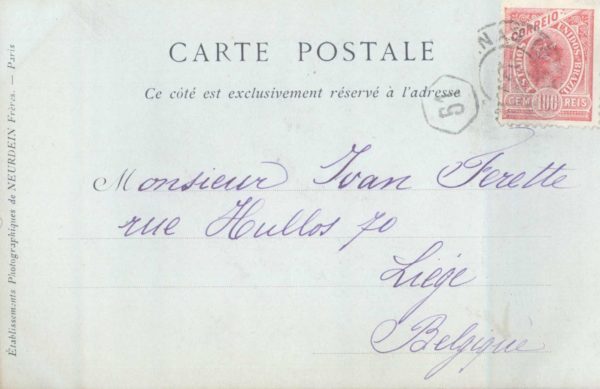 CARTE POSTALE
Ce côté est exclusivement réservé à l'adresse
CORREIO
ESTADOS UNIDOS BRAZIL
CEM 100 REIS
51
Monsieur Ivan Ferette
rue Hullos 70
Liége
Belgique
Établissements Photographiques de NEURDEIN Frères. — Paris